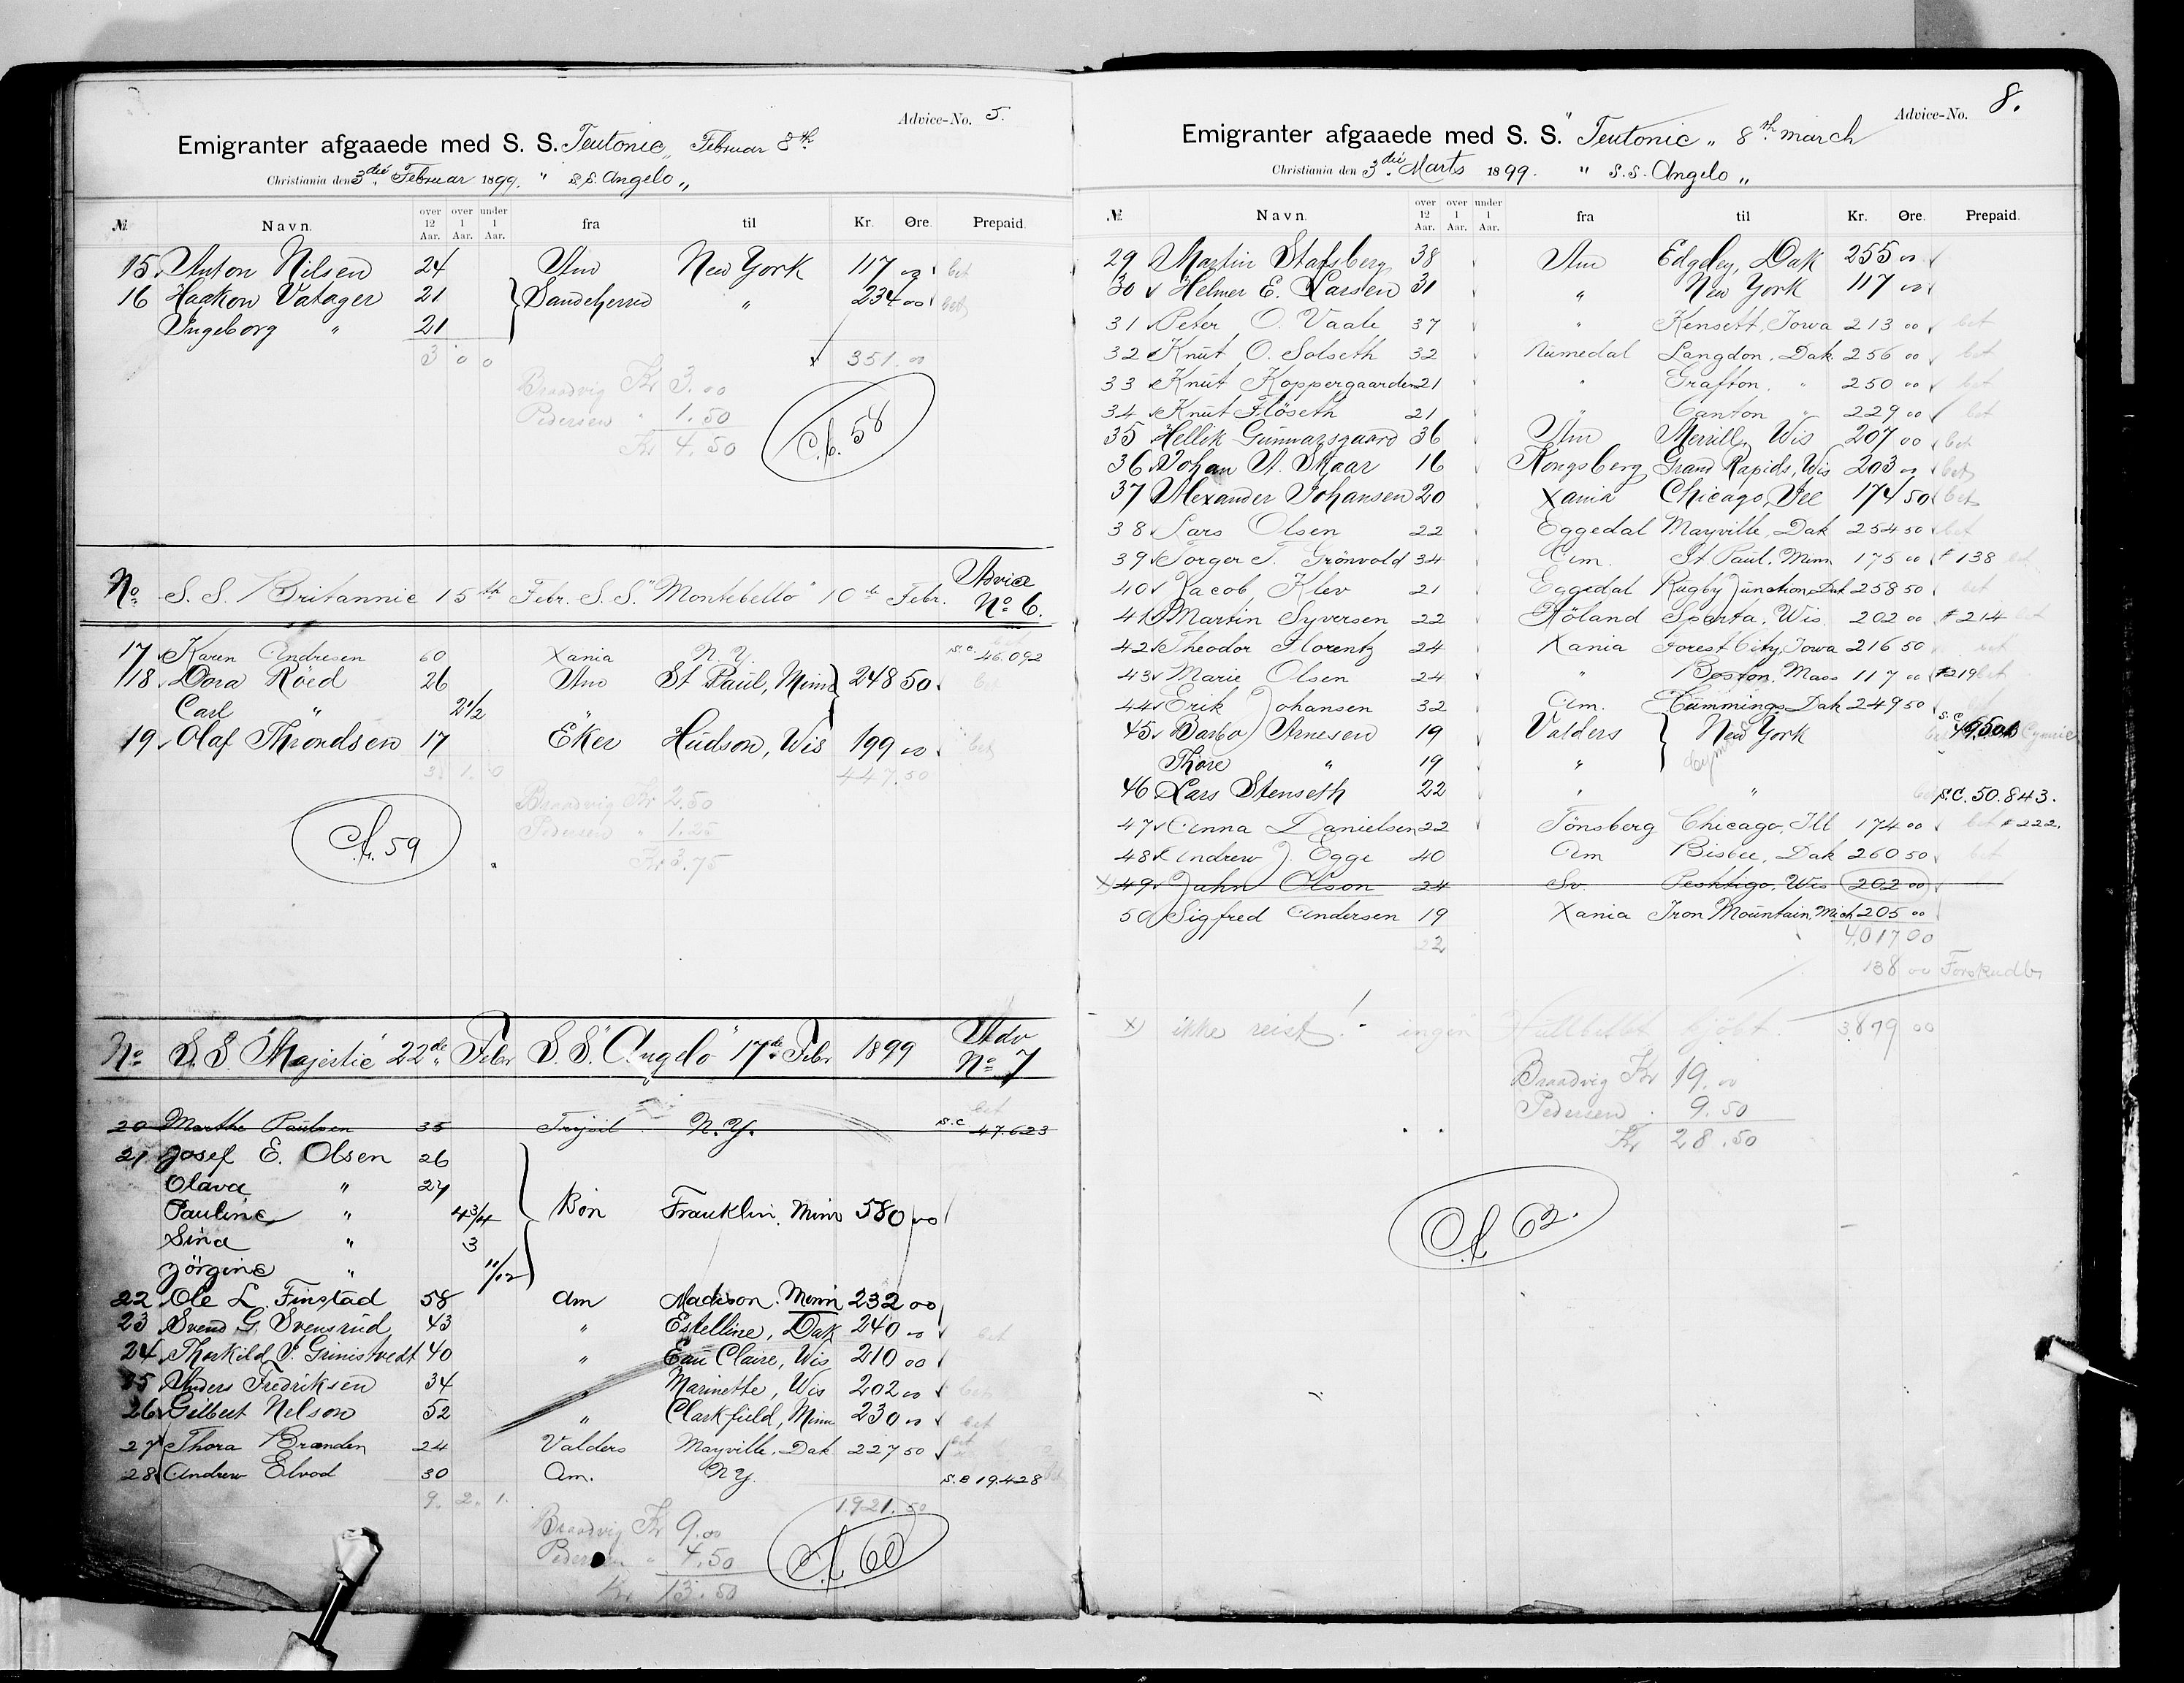 Advice-No. 5.
Emigranter afgaaede med S. S. Teutonic „ Februar 8th
Christiania den 3die Februar 1899. " S.S. Angelo „
№ Navn. over 12 Aar. over 1 Aar. under 1 Aar. fra til Kr. Øre. Prepaid.
15. Anton Nilsen 24 Am New York 117 00 bet
16 Haakon Vatager 21 Sandeherred " 234 00 bet
Ingeborg " 21
3 0 0 351.00
Braadvig Kr 3.00
Pedersen " 1.50
Kr 4.50
C.f. 58
No. S. S. Britannic 15th Febr. S. S. "Montebello" 10de Febr. Advice No 6.
17 Karen Andresen 60 Xania N. Y. S.C. 46.092
18 Dora Röed 26 Am St Paul, Minn 248 50 bet
Carl " 2 1/2 "
19 Olaf Throndsen 17 Eker Hudson, Wis 199 00 bet
3 1 0 447.50
Braadvig Kr 2.50
Pedersen " 1.25
Kr 3.75
C.f. 59
No. S. S. "Majestic" 22de Febr S. S. "Angelo" 17de Febr 1899 Adv No 7
bet
20 Marthe Paulsen 35 Trysil N. Y. S.C. 47.623
21 Josef E. Olsen 26
Olava " 27
Pauline " 4 3/4 Bön Franklin, Minn 580 00
Sina " 3
Jörgine " 11/12
22 Ole L. Finstad 58 Am Madison. Minn 232 00
23 Svend G. Svensrud 43 " Estelline, Dak 240 00 bet
24 Thorkild P. Grimstvedt 40 " Eau Claire, Wis 210 00
25 Anders Fredriksen 34 " Marinette, Wis 202 00 bet
26 Gilbert Nelson 52 " Clarkfield, Minn 230 00 bet
27 Thora Branden 24 Valders Mayville, Dak 227 50 bet
28 Andrew Elvod 30 Am. N Y. S.B 19.428
9. 2. 1. 1.921.50
Braadvig Kr 9.00
Pedersen " 4.50
Kr. 13.50
C.f. 60
Advice-No. 8.
Emigranter afgaaede med S. S. " Teutonic „ 8th march
Christiania den 3die Marts 1899. " S.S. Angelo „
№ Navn. over 12 Aar. over 1 Aar. under 1 Aar. fra til Kr. Øre. Prepaid.
29 Martin Stafsberg 38 Am Edgeley, Dak 255 00
30 Helmer E. Larsen 31 " New York 117 00
31 Peter O. Vaale 37 " Kensett, Iowa 213 00 bet
32 Knut O. Solseth 32 Numedal Langdon, Dak 256 00 bet
33 Knut Koppergaarden 21 " Grafton. " 250 00 bet
34 Knut Flöseth 21 " Canton " 229 00 bet
35 Hellik Gunnarsgaard 36 Am Merrill, Wis 207 00 bet
36 Johan A. Skaar 16 Kongsberg Grand Rapids, Wis 203 00 bet
37 Alexander Johansen 20 Xania Chicago, Ill 174 50 bet
38 Lars Olsen 22 Eggedal Mayville, Dak 254 50 bet
39 Torger T. Grönvold 34 Am. St Paul. Minn 175 00 # 138 bet
40 Jacob Klev 21 Eggedal Rugby Junction, Dak 258 50 bet
41 Martin Syversen 22 Höland Sparta, Wis. 202 00 # 214 bet
42 Theodor Florentz 24 Xania Forest City, Iowa 216 50 bet
43 Marie Olsen 24 " Boston, Mass 117 00 # 219 bet
44 Erik Johansen 32 Am. Cummings, Dak 249 50
45 Barbo Arnesen 19 Valders New York S.C. Cymric
Thore " 19 "
46 Lars Stenseth 22 " " bet S.C. 50.843.
47 Anna Danielsen 22 Tönsberg Chicago, Ill 174 00 bet # 222.
48 Andrew J. Egge 40 Am Bisbee, Dak 260 50 bet
X) 49 John Olson 24 Sv. Peshtigo, Wis 202 00
50 Sigfred Andersen 19 Xania Iron Mountain, Mich 205 00
22 4.017 00
138 00 Forskudt
X) ikke reist! - ingen 3.879 00
Braadvig Kr 19.00
Pedersen " 9.50
Kr. 28.50
C.f. 62.